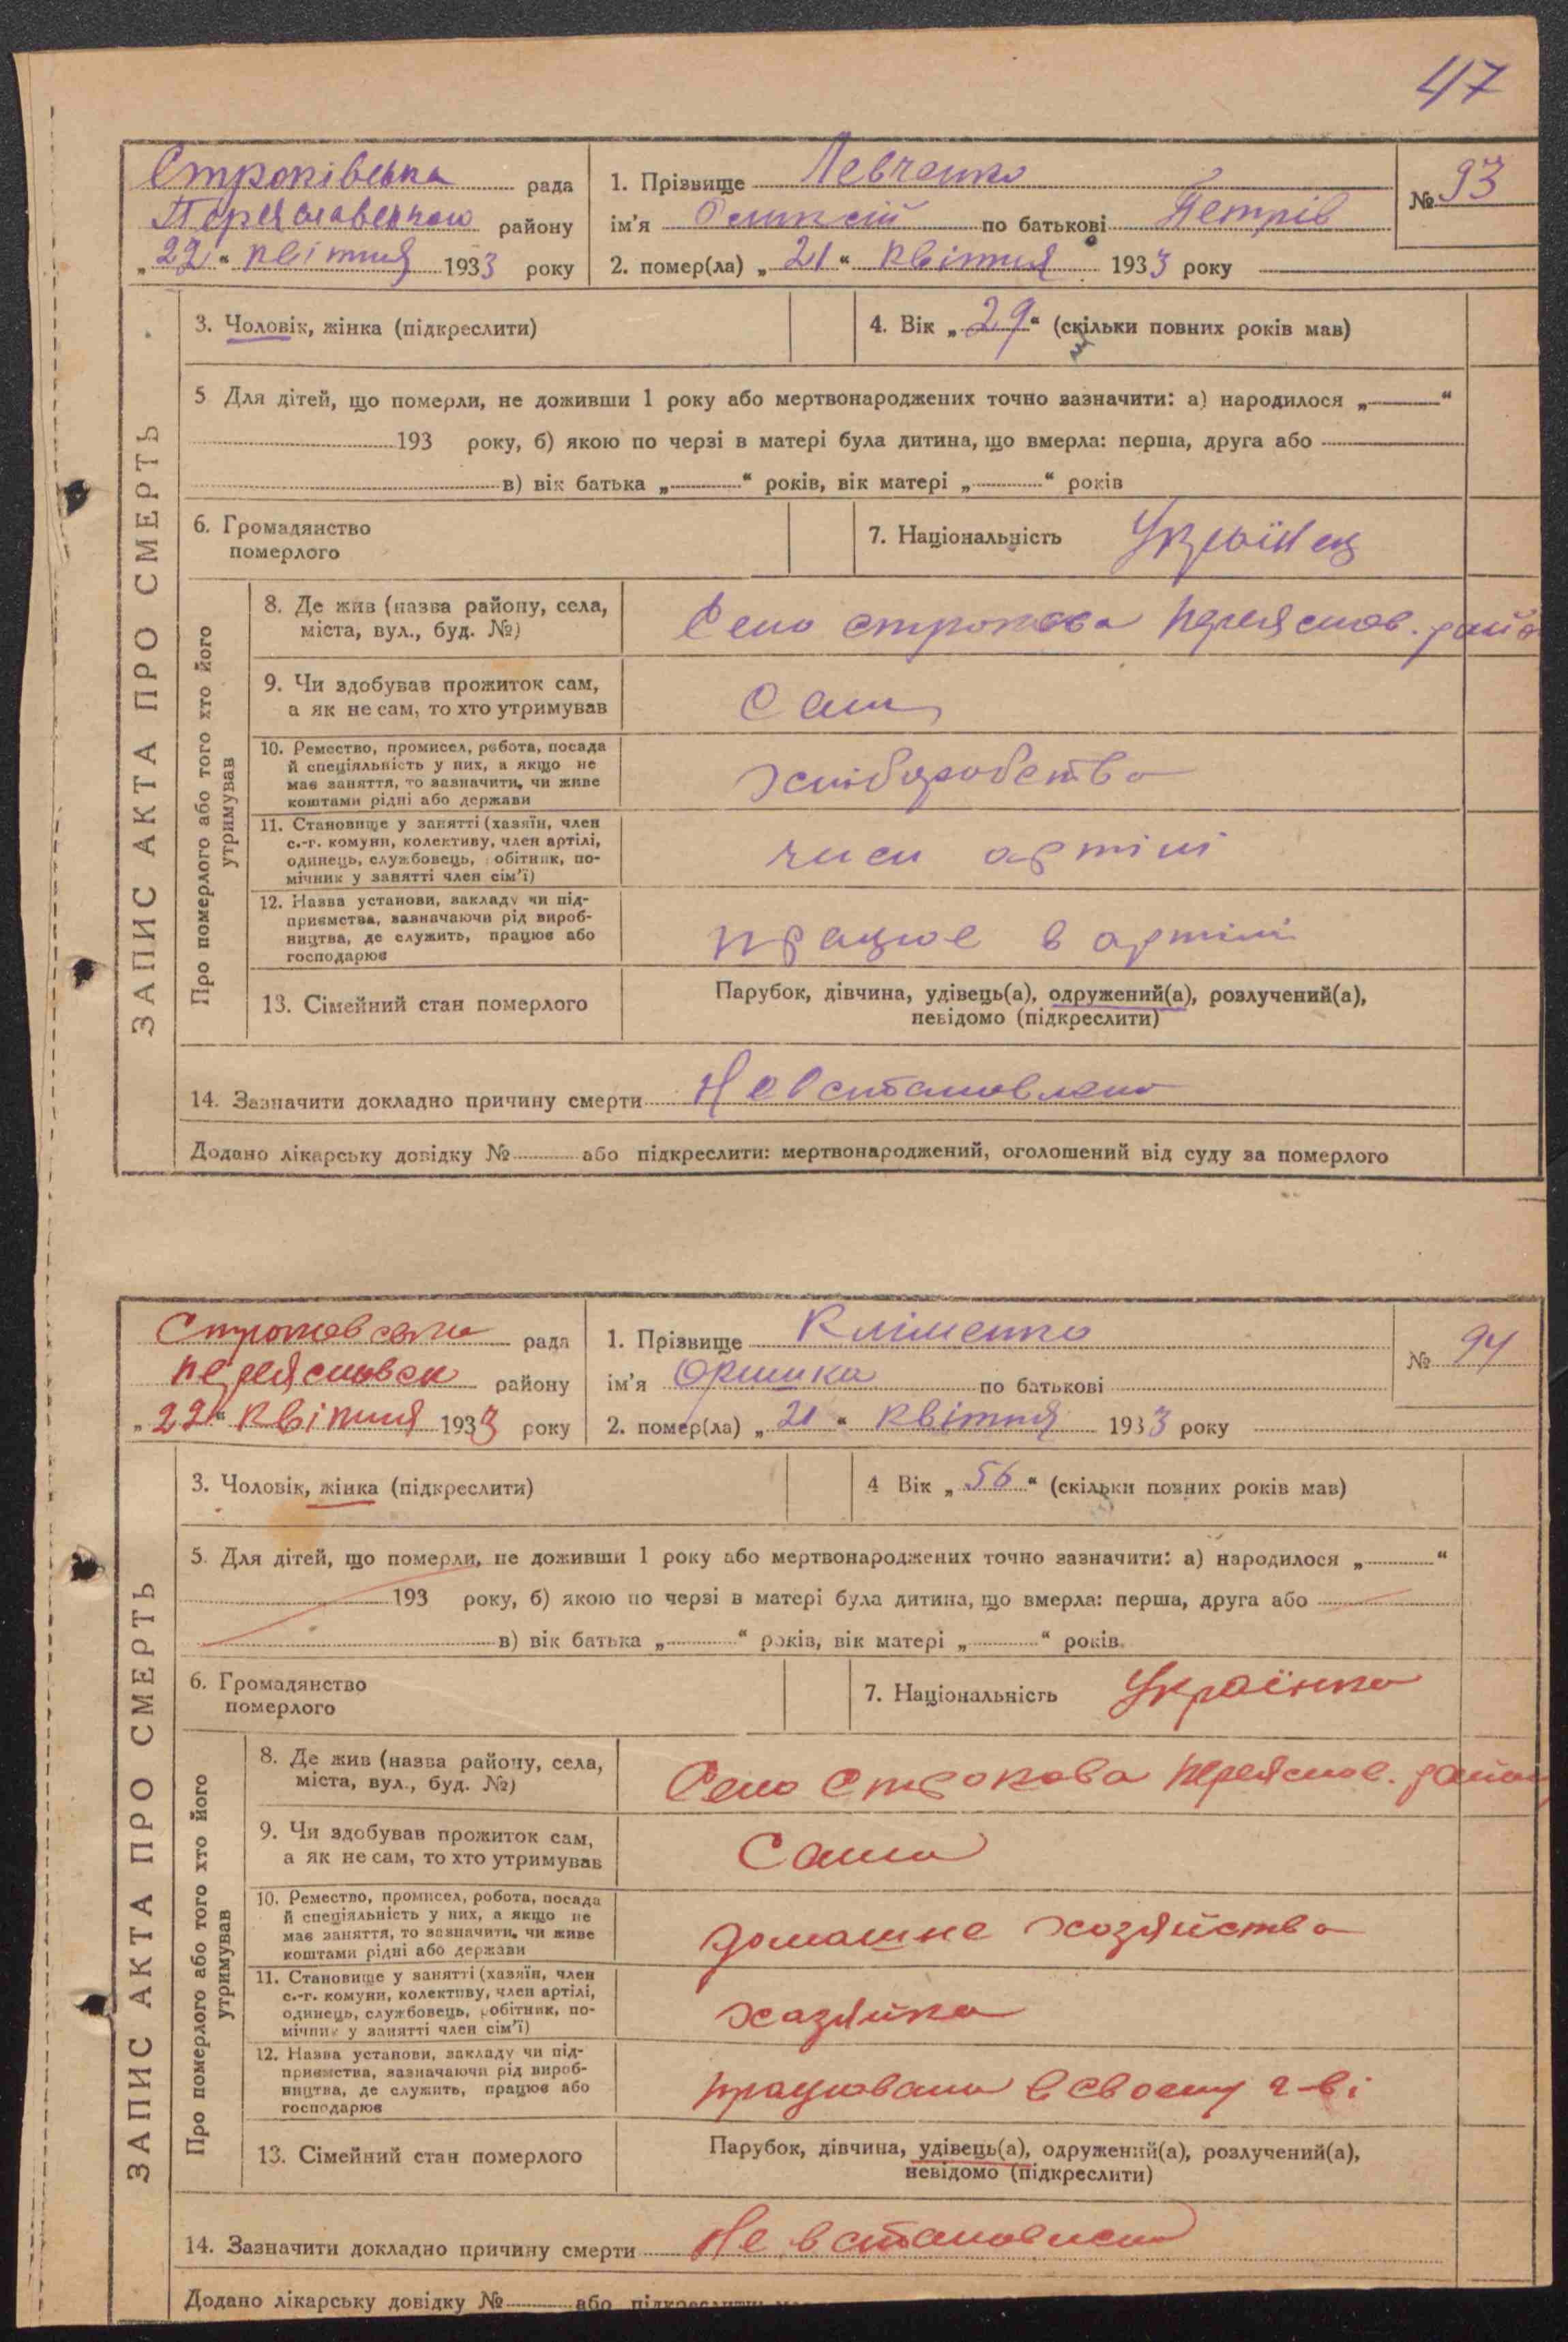 47
Строківська рада
Переяславського району
„22“ квітня 1933 року
1. Прізвище Левченко
ім'я Олексій по батькові Петрів
2. помер(ла) „21“ квітня 1933 року
№ 93
ЗАПИС АКТА ПРО СМЕРТЬ
3. Чоловік, жінка (підкреслити)
4. Вік „29“ (скільки повних років мав)
5 Для дітей, що померли, не доживши 1 року або мертвонароджених точно зазначити: а) народилося „ “
193 року, б) якою по черзі в матері була дитина, що вмерла: перша, друга або
в) вік батька „ “ років, вік матері „ “ років
6. Громадянство
померлого
7. Національність Українец
Про померлого або того хто його
утримував
8. Де жив (назва району, села,
міста, вул., буд. №)
Село строкова переяслов. райо
9. Чи здобував прожиток сам,
а як не сам, то хто утримував
Сам
10. Ремество, промисел, робота, посада
й спеціяльність у них, а якщо не
має заняття, то зазначити, чи живе
коштами рідні або держави
хліборобство
11. Становище у занятті (хазяїн, член
с.-г. комуни, колективу, член артілі,
одинець, службовець, обітник, по-
мічник у занятті член сім'ї)
член артілі
12. Назва установи, закладу чи під-
приємства, зазначаючи рід вироб-
ництва, де служить, працює або
господарює
працює в артілі
13. Сімейний стан померлого
Парубок, дівчина, удівець(а), одружений(а), розлучений(а),
невідомо (підкреслити)
14. Зазначити докладно причину смерти Невстановлено
Додано лікарську довідку № або підкреслити: мертвонароджений, оголошений від суду за померлого
Строковська рада
переясловск району
„22“ квітня 1933 року
1. Прізвище Кліменко
ім'я Оришка по батькові
2. помер(ла) „21“ квітня 1933 року
№ 94
ЗАПИС АКТА ПРО СМЕРТЬ
3. Чоловік, жінка (підкреслити)
4 Вік „56“ (скільки повних років мав)
5. Для дітей, що померли, не доживши 1 року або мертвонароджених точно зазначити: а) народилося „ “
193 року, б) якою по черзі в матері була дитина, що вмерла: перша, друга або
в) вік батька „ “ років, вік матері „ “ років.
6. Громадянство
померлого
7. Національність Українка
Про померлого або того хто його
утримував
8. Де жив (назва району, села,
міста, вул., буд. №)
Село Строкова переяслов. район
9. Чи здобував прожиток сам,
а як не сам, то хто утримував
Сама
10. Ремество, промисел, робота, посада
й спеціяльність у них, а якщо не
має заняття, то зазначити, чи живе
коштами рідні або держави
домашне хозяйство
11. Становище у занятті (хазяїн, член
с.-г. комуни, колективу, член артілі,
одинець, службовець, робітник, по-
мічник у занятті член сім'ї)
хазяйка
12. Назва установи, закладу чи під-
приємства, зазначаючи рід вироб-
ництва, де служить, працює або
господарює
працювала в своему г-ві
13. Сімейний стан померлого
Парубок, дівчина, удівець(а), одружений(а), розлучений(а),
невідомо (підкреслити)
14. Зазначити докладно причину смерти Не встановлено
Додано лікарську довідку № або підкреслити